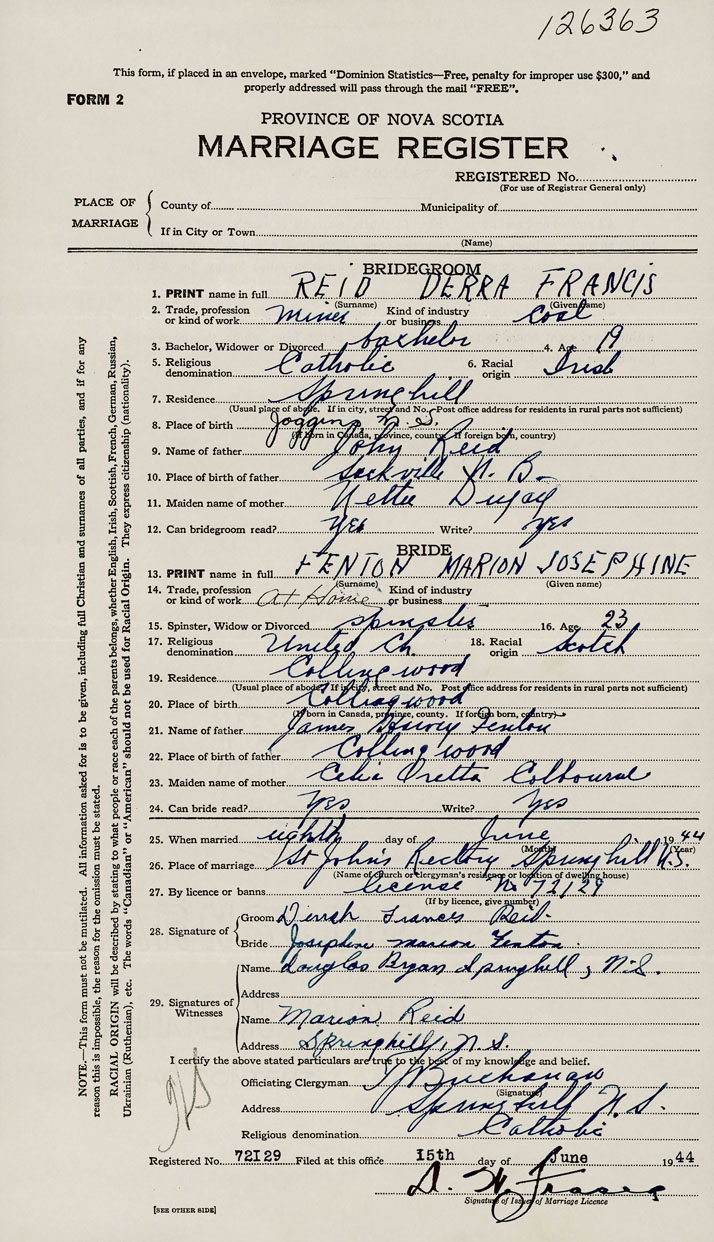 126363
This form, if placed in an envelope, marked "Dominion Statistics—Free, penalty for improper use $300," and
properly addressed will pass through the mail "FREE".
FORM 2
PROVINCE OF NOVA SCOTIA
MARRIAGE REGISTER
REGISTERED No.
(For use of Registrar General only)
PLACE OF MARRIAGE
County of Municipality of
If in City or Town
(Name)
BRIDEGROOM
1. PRINT name in full REID DERRA FRANCIS
(Surname) (Given name)
2. Trade, profession or kind of work miner Kind of industry or business coal
3. Bachelor, Widower or Divorced bachelor 4. Age 19
5. Religious denomination Catholic 6. Racial origin Irish
7. Residence Springhill
(Usual place of abode. If in city, street and No. Post office address for residents in rural parts not sufficient)
8. Place of birth Joggins N.S.
(If born in Canada, province, county. If foreign born, country)
9. Name of father John Reid
10. Place of birth of father Sackville N. B.
11. Maiden name of mother Nettie Dugay
12. Can bridegroom read? Yes Write? yes
BRIDE
13. PRINT name in full FENTON MARION JOSEPHINE
(Surname) (Given name)
14. Trade, profession or kind of work At Home Kind of industry or business
15. Spinster, Widow or Divorced spinster 16. Age 23
17. Religious denomination United Ch. 18. Racial origin Scotch
19. Residence Collingwood
(Usual place of abode. If in city, street and No. Post office address for residents in rural parts not sufficient)
20. Place of birth Collingwood
(If born in Canada, province, county. If foreign born, country)
21. Name of father James Harvey Fenton
22. Place of birth of father Collingwood
23. Maiden name of mother Celia Oretta Colbourne
24. Can bride read? Yes Write? Yes
25. When married eighth day of June 1944
(Month) (Year)
26. Place of marriage St John's Rectory Springhill N.S.
(Name of church or clergyman's residence or location of dwelling house)
27. By licence or banns license No 72129
(If by licence, give number)
28. Signature of
Groom Derrah Frances Reid
Bride Josephine Marion Fenton
29. Signatures of Witnesses
Name Douglas Bryan Springhill, N.S.
Address
Name Marion Reid
Address Springhill, N.S.
I certify the above stated particulars are true to the best of my knowledge and belief.
Officiating Clergyman Buchanan
(Signature)
Address Springhill N.S.
Religious denomination Catholic
Registered No. 72129 Filed at this office 15th day of June 1944
D. W. Fraser
Signature of Issuer of Marriage Licence
[SEE OTHER SIDE]
NOTE.—This form must not be mutilated. All information asked for is to be given, including full Christian and surnames of all parties, and if for any
reason this is impossible, the reason for the omission must be stated.
RACIAL ORIGIN will be described by stating to what people or race each of the parents belongs, whether English, Irish, Scottish, French, German, Russian,
Ukrainian (Ruthenian), etc. The words "Canadian" or "American" should not be used for Racial Origin. They express citizenship (nationality).